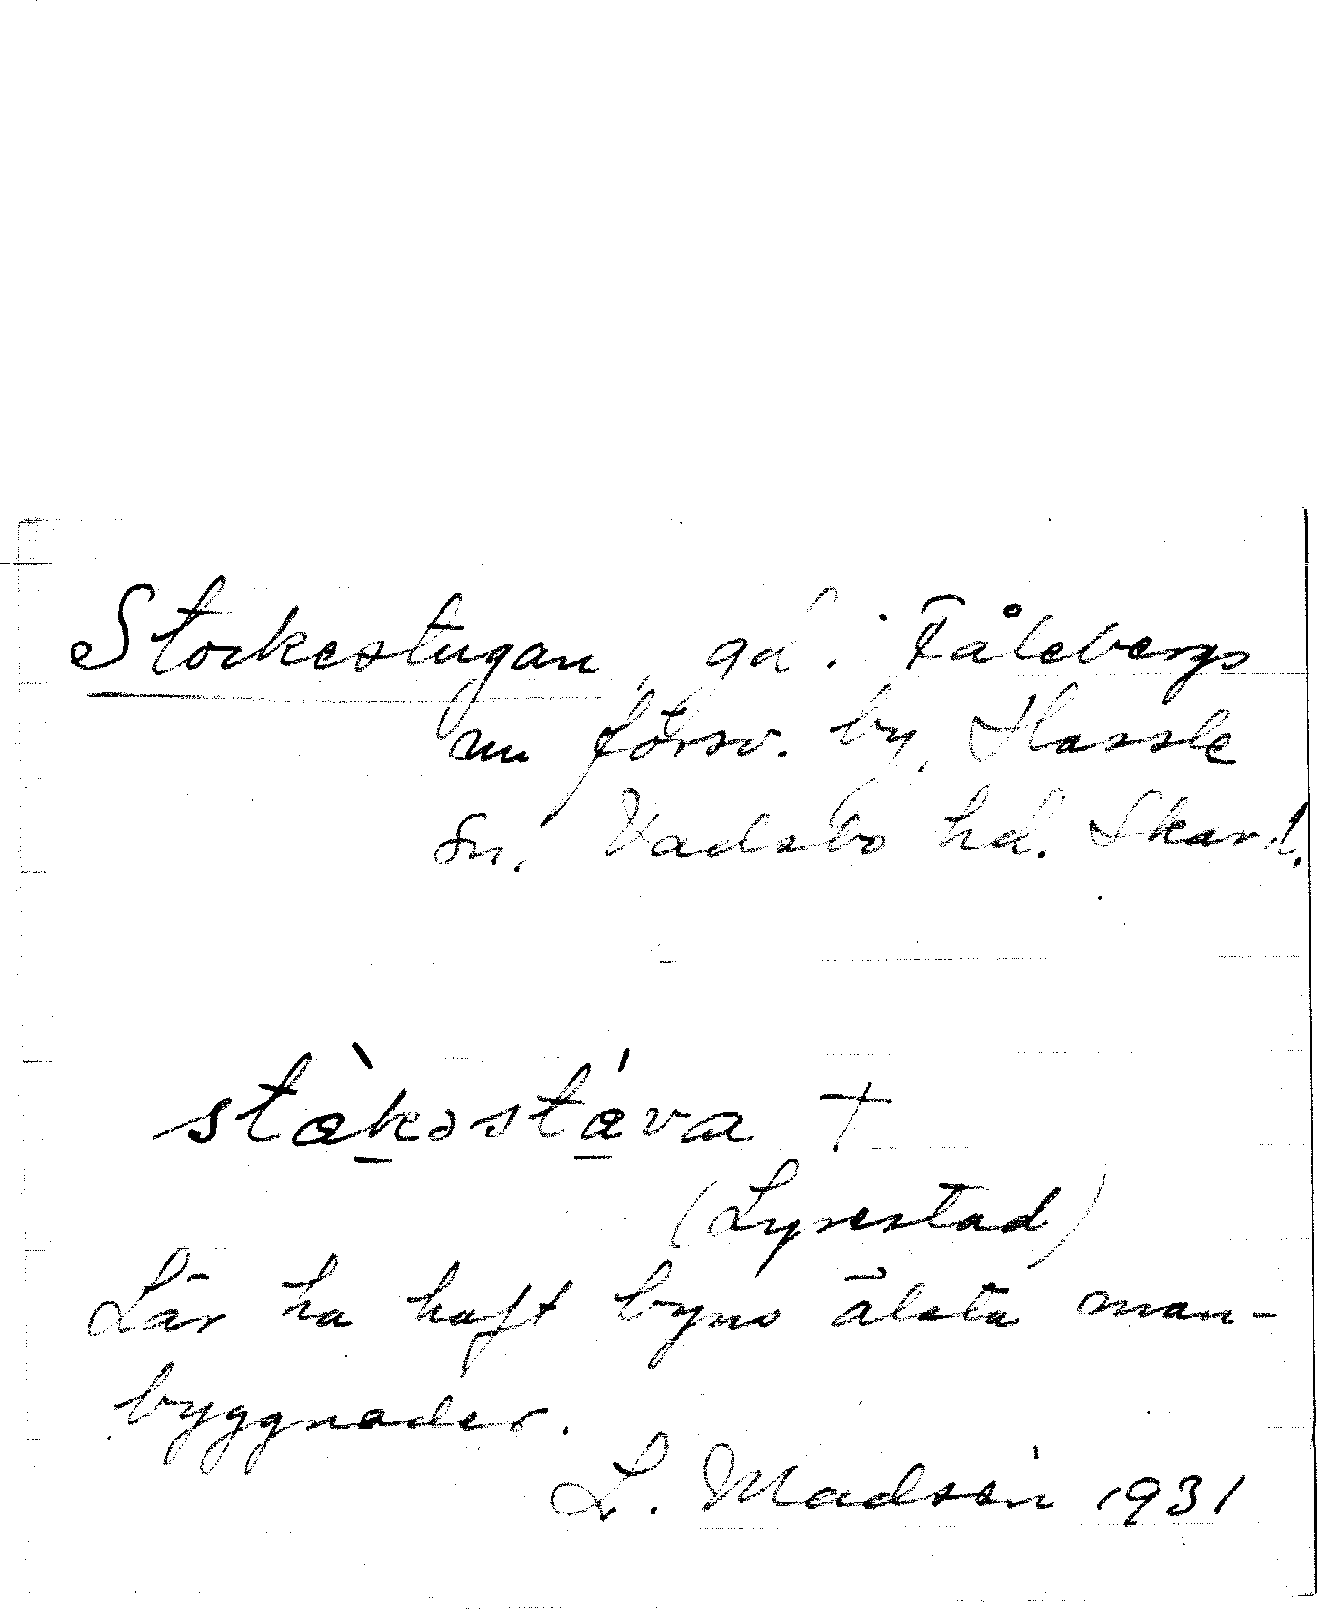 Stockestugan, gd. i Fålebergs
nu försv. by, Hassle
sn. Vadsbo hd. Skar. l.
stɑ̀kəstɑ́va +
(Lyrestad)
Lär ha haft byns älsta man-
byggnader.
L. Madsén 1931